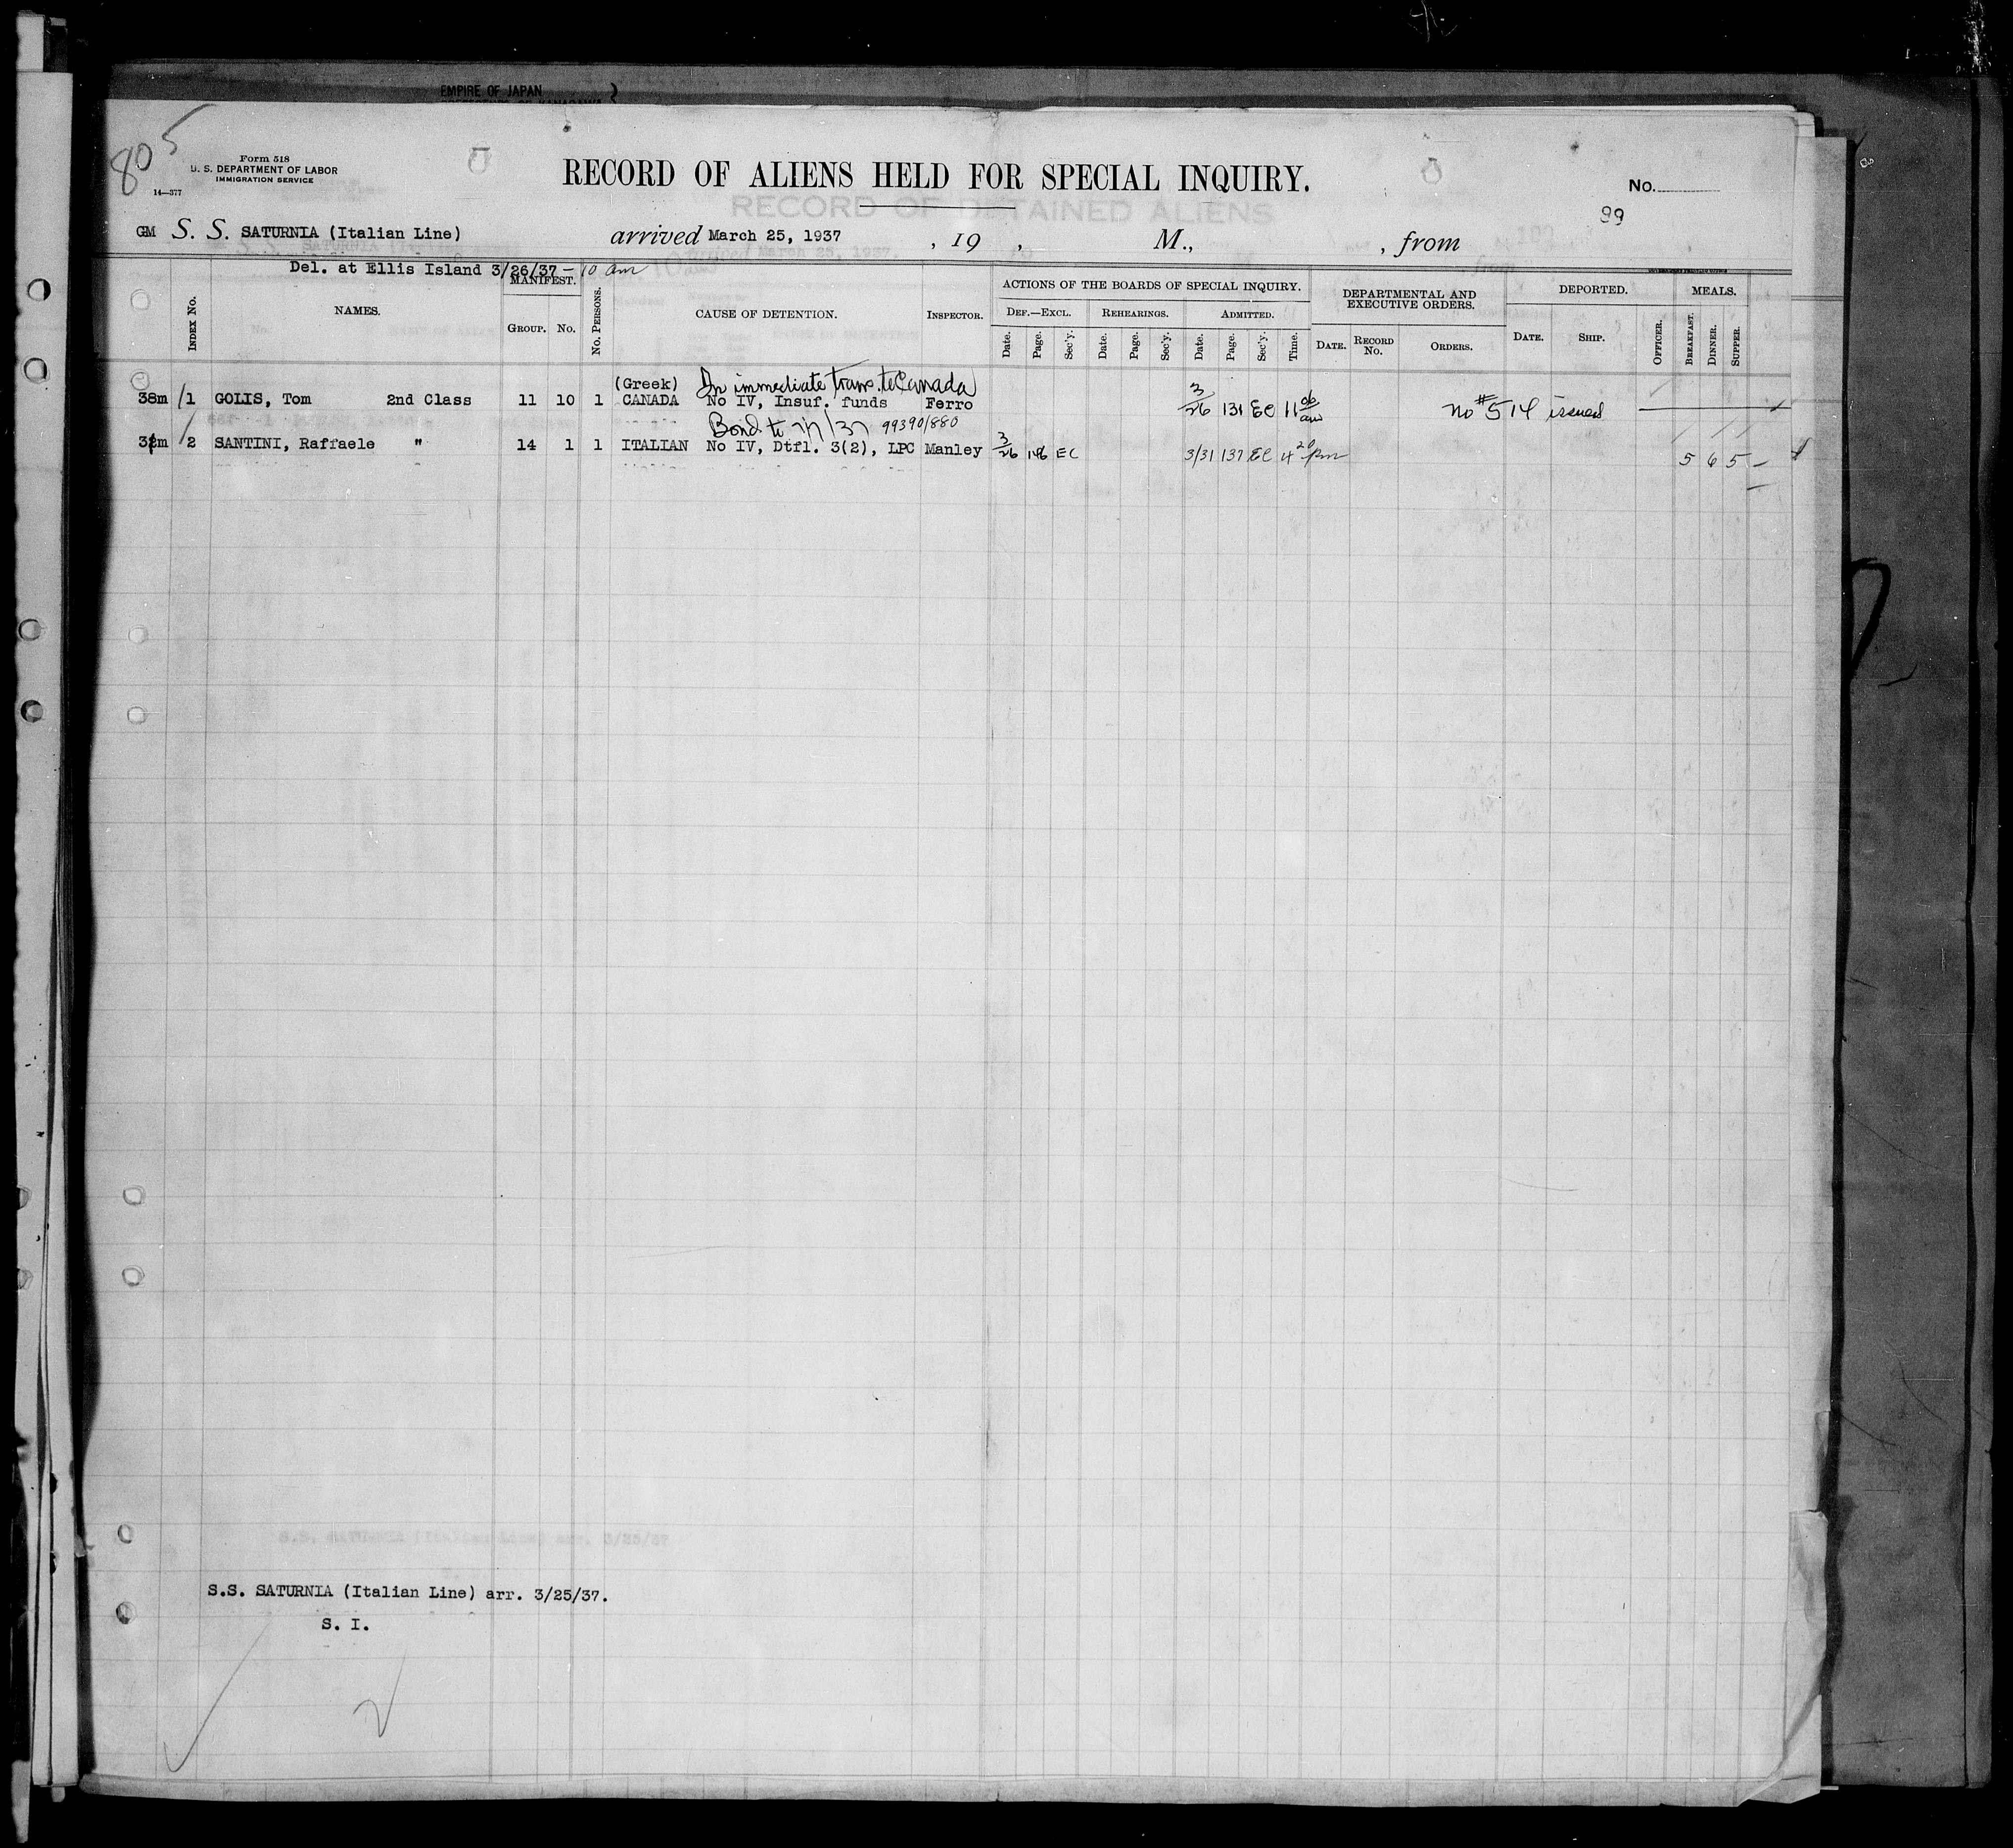 EMPIRE OF JAPAN
805
Form 518
U. S. DEPARTMENT OF LABOR
IMMIGRATION SERVICE
14—377
RECORD OF ALIENS HELD FOR SPECIAL INQUIRY.
No.
99
RECORD OF DETAINED ALIENS
GM S. S. SATURNIA (Italian Line) arrived March 25, 1937 , 19 , M., , from
Del. at Ellis Island 3/26/37 - 10 am
INDEX No. NAMES. MANIFEST. GROUP. No. No. PERSONS. CAUSE OF DETENTION. INSPECTOR. ACTIONS OF THE BOARDS OF SPECIAL INQUIRY. DEPARTMENTAL AND EXECUTIVE ORDERS. DEPORTED. MEALS.
DEF.—EXCL. REHEARINGS. ADMITTED.
Date. Page. Sec'y. Date. Page. Sec'y. Date. Page. Sec'y. Time. DATE. RECORD No. ORDERS. DATE. SHIP. OFFICER. BREAKFAST. DINNER. SUPPER.
(Greek) In immediate trans. to Canada
38m 1 GOLIS, Tom 2nd Class 11 10 1 CANADA No IV, Insuf. funds Ferro 3/26 131 EC 11 00 am no #514 issued
Bond to 99390/880
m 2 SANTINI, Raffaele " 14 1 1 ITALIAN No IV, Dtfl. 3(2), LPC Manley 3/26 EC 3/31 137 EC 4 20 pm 5 6 5
S.S. SATURNIA (Italian Line) arr. 3/25/37.
S. I.
2